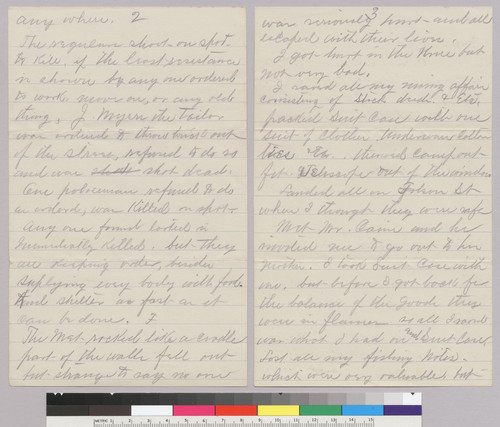 any where. 2
The regulars shoot on spot.
to Kill. if the least resistance
is shown by any one ordered
to work, move on, or any old
thing. J. Myers the Tailor
was ordered to throw out
of the store, refused to do so
and was shot dead.
One policeman refused to do
as ordered, was Killed on spot.
any one found looting is
immediately Killed. but they
are keeping order, besides
suplying every body with food.
and shelter as fast as it
can be done.
The Met. rocked like a cradle
part of the walls fell out
but strange to say no one
3
was seriously hurt and all
escaped with their lives.
I got hurt in the Knee but
not very bad.
I saved all my mining affairs
consisting of Stock, deeds & Etc,
packed Suit Case with one
Suit of Clothes, Underwear Collars
ties Etc. threw camp out
fit out of the window
landed all on Folsom St
when I thought they were safe
Met Mr. Caine and he
invited me to go out to his
Sister. I took Suit Case with
me. but before I got back for
the balance of the goods they
were in flames so all I saved
was what I had on and Suit Case,
Lost all my fishing Notes.
which were very valuable but
METRIC 1 2 3 4 5 6 7 8 9 10 11 12 13 14 15